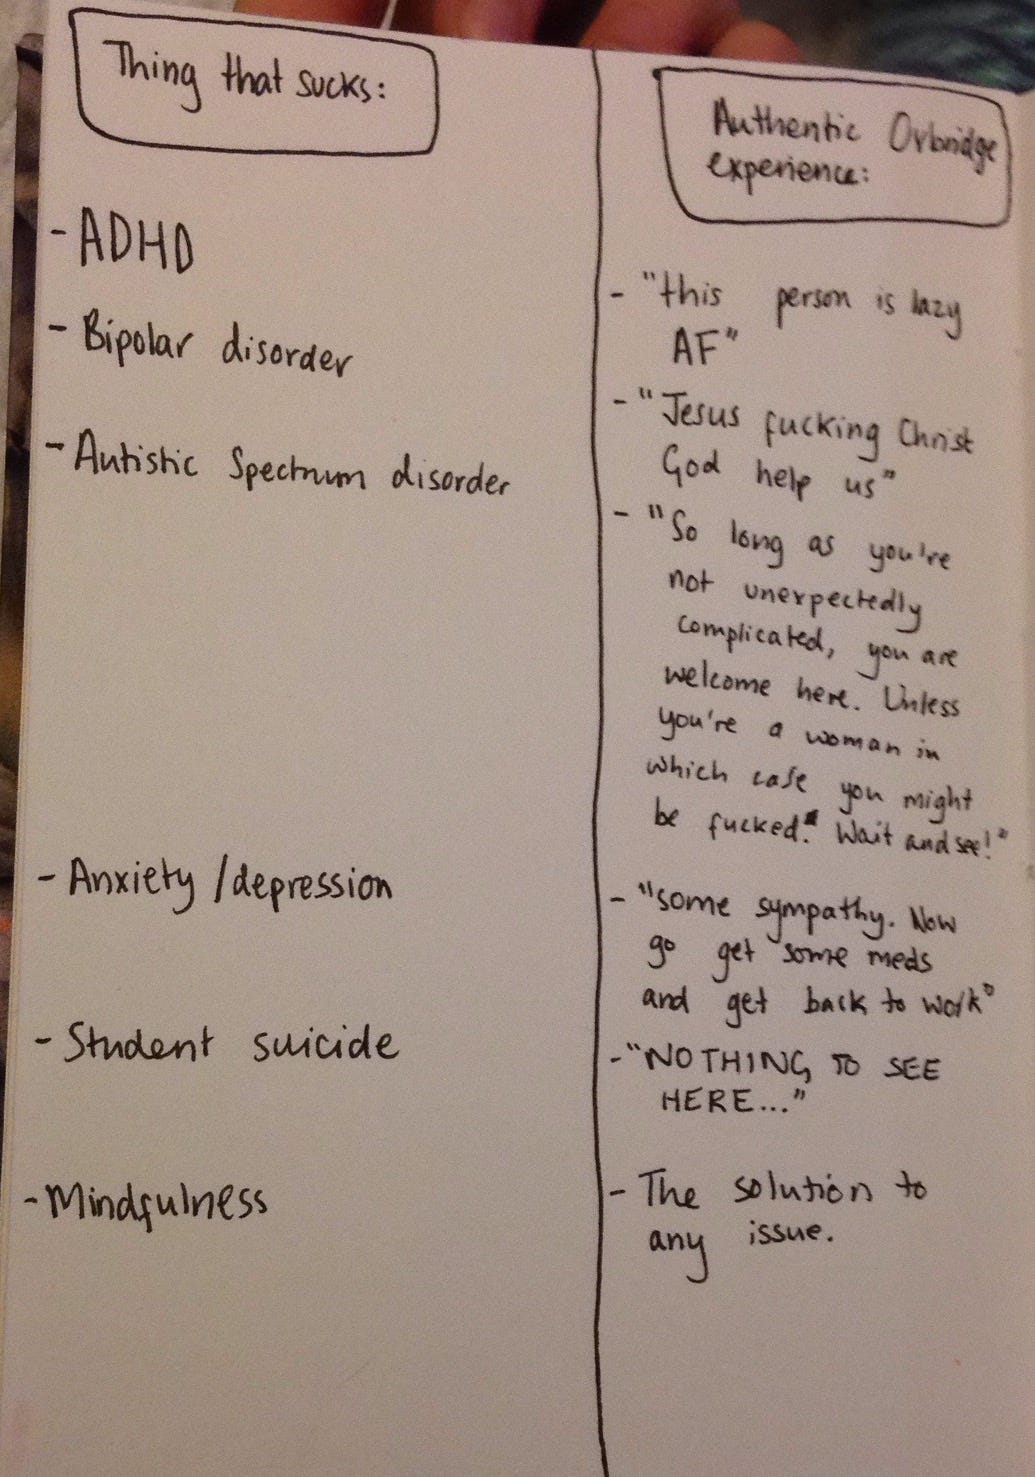 Thing that sucks:
- ADHD
- Bipolar disorder
- Autistic Spectrum disorder
- Anxiety / depression
- Student suicide
- Mindfulness
Authentic Oxbridge
experience:
- "this person is lazy
AF"
- "Jesus fucking Christ
God help us"
- "So long as you're
not unexpectedly
complicated, you are
welcome here. Unless
you're a woman in
which case you might
be fucked." Wait and see!"
- "some sympathy. Now
go get some meds
and get back to work"
- "NOTHING TO SEE
HERE..."
- The solution to
any issue.